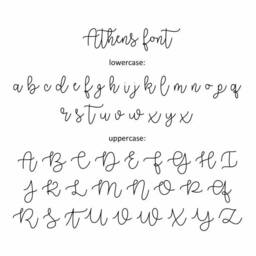 Athens font
lowercase:
a b c d e f g h i j k l m n o p q
r s t u v w x y z
uppercase:
A B C D E F G H I
J K L M N O P Q
R S T U V W X Y Z